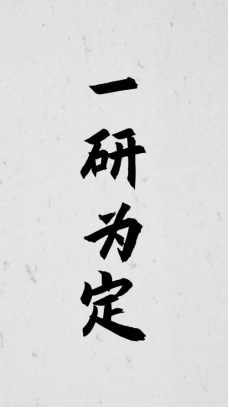 一研为定